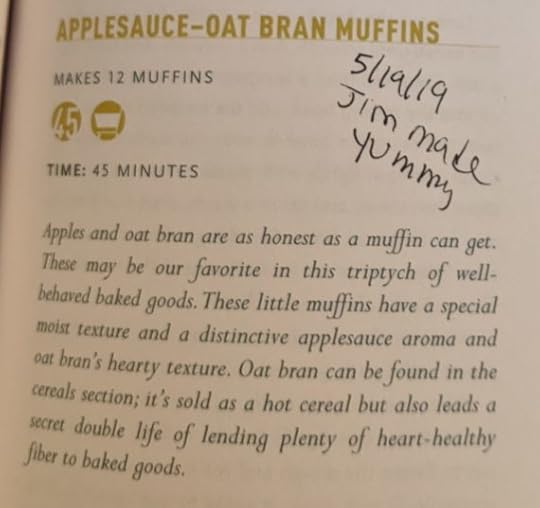 APPLESAUCE–OAT BRAN MUFFINS
5/19/19
Jim made
Yummy
MAKES 12 MUFFINS
45
TIME: 45 MINUTES
Apples and oat bran are as honest as a muffin can get.
These may be our favorite in this triptych of well-
behaved baked goods. These little muffins have a special
moist texture and a distinctive applesauce aroma and
oat bran's hearty texture. Oat bran can be found in the
cereals section; it's sold as a hot cereal but also leads a
secret double life of lending plenty of heart-healthy
fiber to baked goods.